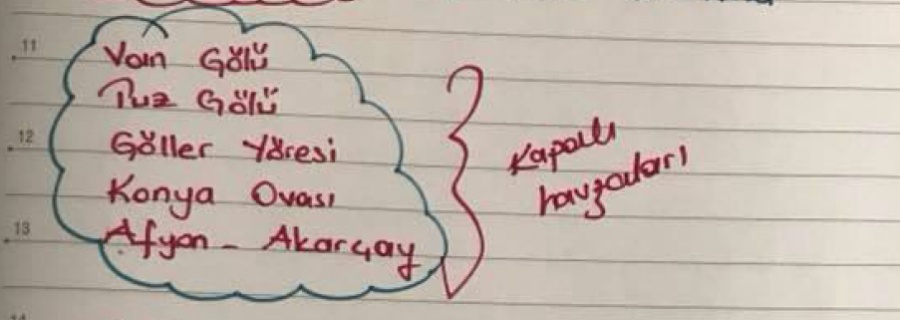 11
Van Gölü
Tuz Gölü
12
Göller Yöresi
Kapalı
havzaları
Konya Ovası
13
Afyon - Akarçay